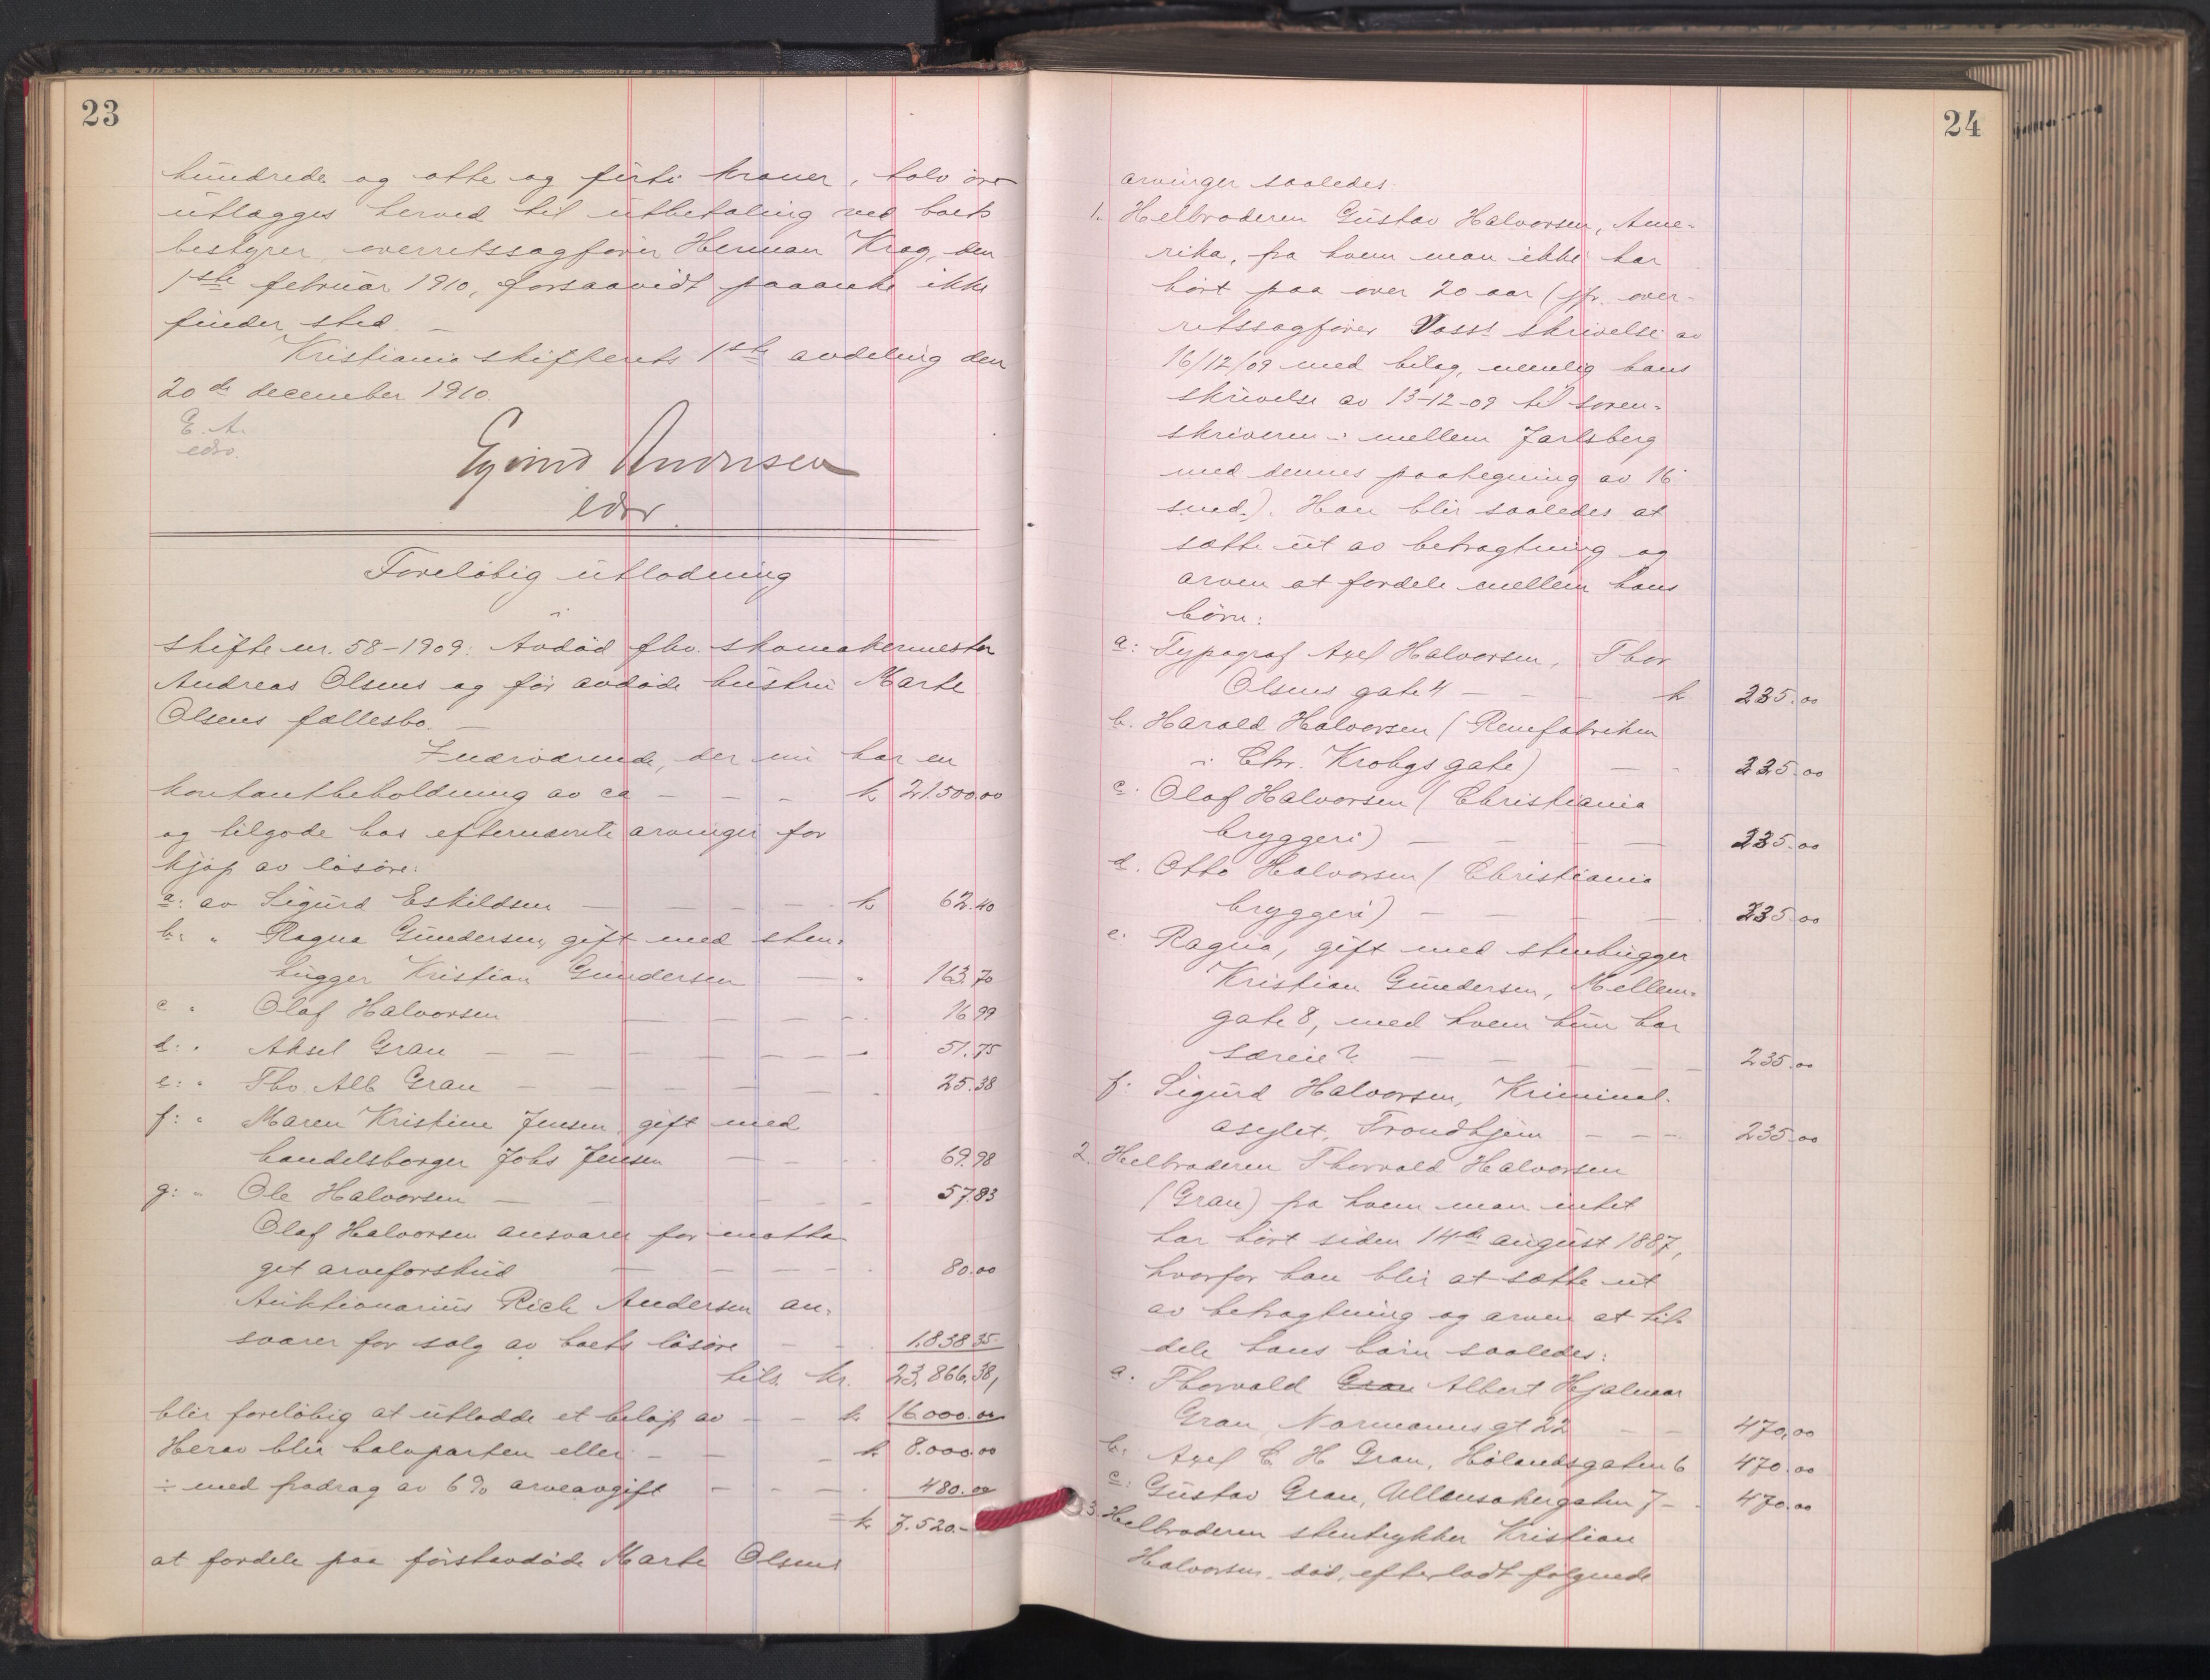 23
hundrede og otte og firti kroner, tolv øre
utlægges herved til utbetaling ved boets
bestyrer, overretssagfører Herman Krag, den
1ste februar 1910, forsaavidt paaanke ikke
finder sted. —
Kristiania skifterets 1ste avdeling den
20de december 1910.
E. A.
edsv.
Eyvind Andersen
edsv.
Foreløbig utlodning
i
skifte nr. 58-1909: Avdød fhv. skomakermester
Andreas Olsens og før avdøde hustru Marte
Olsens fællesbo. —
Indeværende, der nu har en
kontantbeholdning av ca — — — k 21.500.00
og tilgode hos efternævnte arvinger for
kjøp av løsøre:
a: av Sigurd Eskildsen — — — — k 62.40
b: " Ragna Gundersen, gift med sten-
hugger Kristian Gundersen — " 163.70
c " Olaf Halvorsen — — — — 16.99
d: " Aksel Gran — — — — — — — 51.75
e: " Tho. Alb Gran — — — — — 25.38
f: " Maren Kristine Jensen, gift med
handelsborger Johs Jensen — — — 69.98
g: " Ole Halvorsen — — — — 57.83
Olaf Halvorsen ansvarer for motta-
get arveforskud — — — — — 80.00
Auktionarius Rich Andersen an-
svarer for salg av boets løsøre — — 1.838.35
tils. kr. 23.866.38,
blir foreløbig at utlodde et beløp av — — k. 16.000.00
Herav blir halvparten eller — — — k 8.000.00
÷ med fradrag av 6% arveavgift — — — 480.00
= k 7.520.—
at fordele paa førstavdøde Marte Olsens
24
arvinger saaledes:
1. Helbroderen Gustav Halvorsen, Ame-
rika, fra hvem man ikke har
hørt paa over 20 aar (jfr. over-
retssagfører Voss' skrivelse av
16/12/09 med bilag, nemlig hans
skrivelse av 13-12-09 til soren-
skriveren i mellem Jarlsberg
med dennes paategning av 16
s.md.). Han blir saaledes at
sætte ut av betragtning og
arven at fordele mellem hans
børn:
a: Typograf Axel Halvorsen, Thor
Olsens gate 4 — — — k 235.00
b. Harald Halvorsen (Remfabriken
i Chr. Krohgs gate) — - 235.00
c. Olaf Halvorsen (Christiania
bryggeri) — — — — 235.00
d. Otto Halvorsen (Christiania
bryggeri) — — — — 235.00
e. Ragna, gift med stenhugger
Kristian Gundersen, Mellem-
gate 8, med hvem hun har
særeie? — — — — 235.00
f. Sigurd Halvorsen, Kriminal-
asylet, Trondhjem — — — 235.00
2. Helbroderen Thorvald Halvorsen
(Gran) fra hvem man intet
har hørt siden 14de august 1887,
hvorfor han blir at sætte ut
av betragtning og arven at til-
dele hans børn saaledes:
a. Thorvald Gran Albert Hjalmar
Gran, Normannsgt 22 — — 470.00
b. Axel C. H. Gran, Hølandsgaten 6 470.00
c: Gustav Gran, Ullensakergaten 7 — 470.00
3. Helbroderen stentrykker Kristian
Halvorsen, død, efterlodt følgende